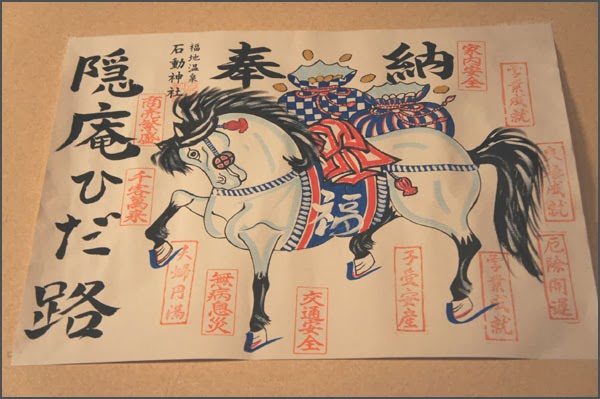 奉納
福地温泉
石動神社
隠庵ひだ路
福
家内安全
学業成就
厄除開運
学業成就
交通安全
無病息災
夫婦円満
千客萬来
商売繁盛